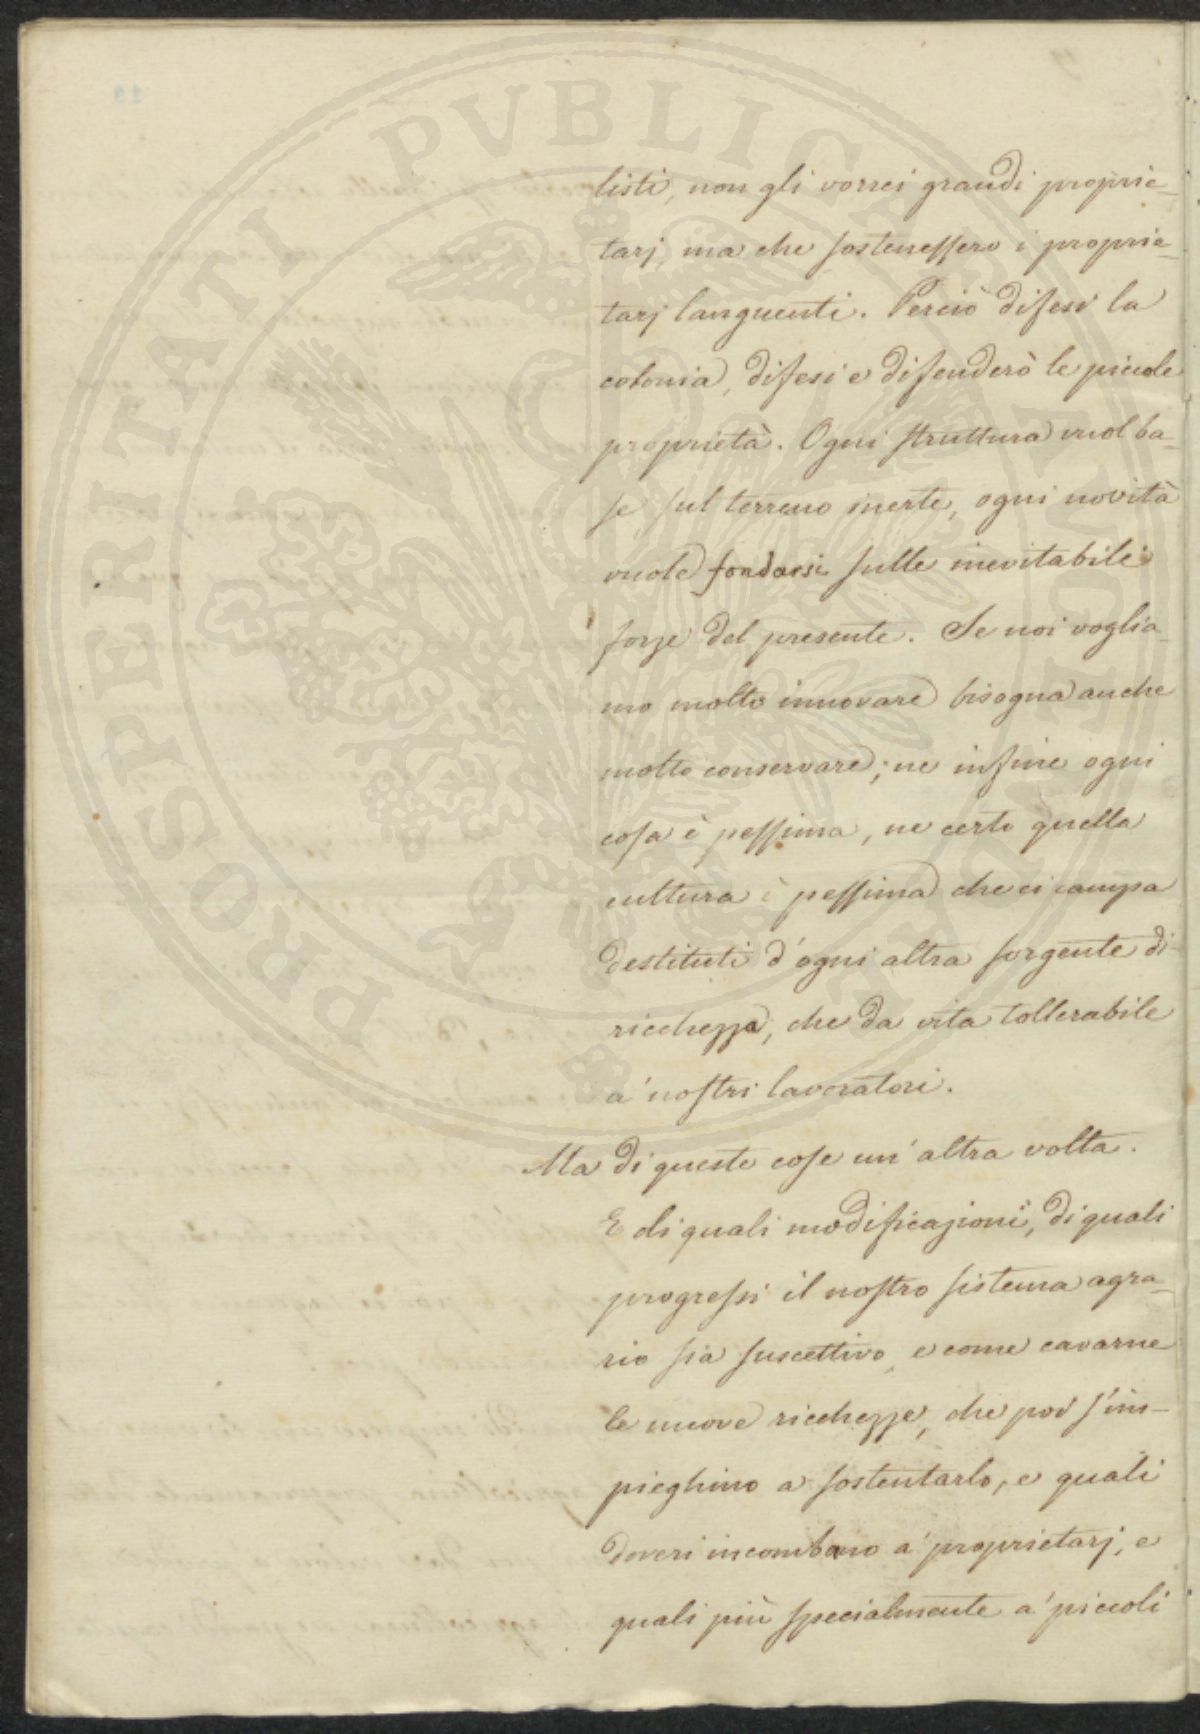 PROSPERITATI PVBLICAE AVGENDAE
listi, non gli vorrei grandi proprie-
tarj, ma che sostenessero i proprie-
tarj languenti. Perciò difesi la
colonia, difesi e difenderò le piccole
proprietà. Ogni struttura vuol ba-
se sul terreno inerte, ogni novità
vuole fondarsi sulle inevitabili
forze del presente. Se noi voglia-
mo molto innovare bisogna anche
molto conservare; ne infine ogni
cosa è pessima, ne certo quella
cultura è pessima che ci campa
destituti d'ogni altra sorgente di
ricchezza, che da vita tollerabile
a' nostri lavoratori.
Ma di queste cose un'altra volta.
E di quali modificazioni, di quali
progressi il nostro sistema agra-
rio sia suscettivo, e come cavarne
le nuove ricchezze, che poi s'im-
pieghino a sostentarlo, e quali
doveri incombano a' proprietarj, e
quali più specialmente a' piccoli